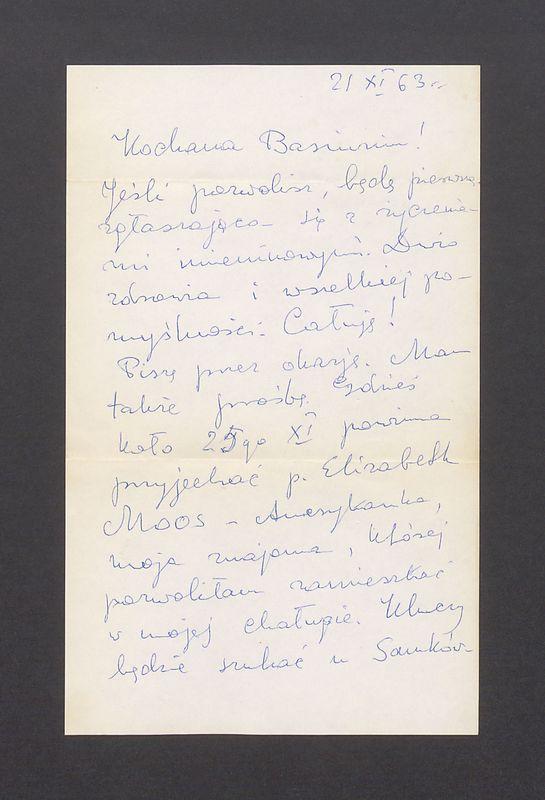 21 XI 63 r.
Kochana Basiuniu!
Jeśli pozwolisz, będę pierwszą
zgłaszającą się z życzenia-
mi imieninowymi. Dużo
zdrowia i wszelkiej po-
myślności. Całuję!
Piszę przez okazję. Mam
także prośbę. Gdzieś
koło 25go XI powinna
przyjechać p. Elizabeth
Moos – Amerykanka,
moja znajoma, której
pozwoliłam zamieszkać
w mojej chałupie. Kluczy
będzie szukać u